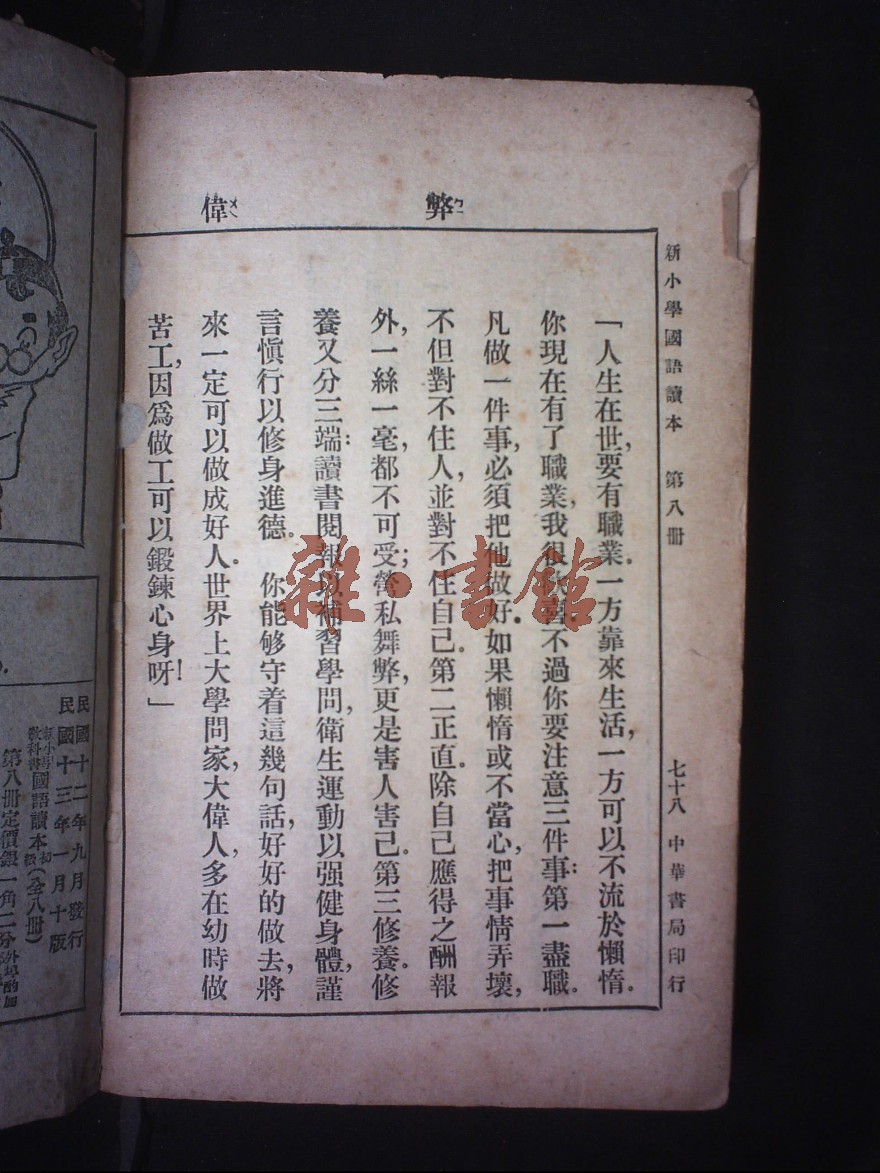 新小學國語讀本 第八冊
七十八 中華書局印行
弊 ㄅㄧ
偉 ㄨㄟ
「人生在世,要有職業.一方靠來生活,一方可以不流於懶惰.
你現在有了職業,我很歡喜.不過你要注意三件事:第一盡職.
凡做一件事,必須把他做好.如果懶惰或不當心,把事情弄壞,
不但對不住人,並對不住自己.第二正直.除自己應得之酬報
外,一絲一毫,都不可受;營私舞弊,更是害人害己.第三修養.修
養又分三端:讀書閱報以補習學問,衛生運動以强健身體,謹
言慎行以修身進德. 你能够守着這幾句話,好好的做去,將
來一定可以做成好人.世界上大學問家,大偉人,多在幼時做
苦工,因爲做工可以鍛鍊心身呀!」
雜·書館
民國十二年九月發行
民國十三年一月十版
新小學教科書國語讀本初級(全八冊)
第八冊定價銀一角二分